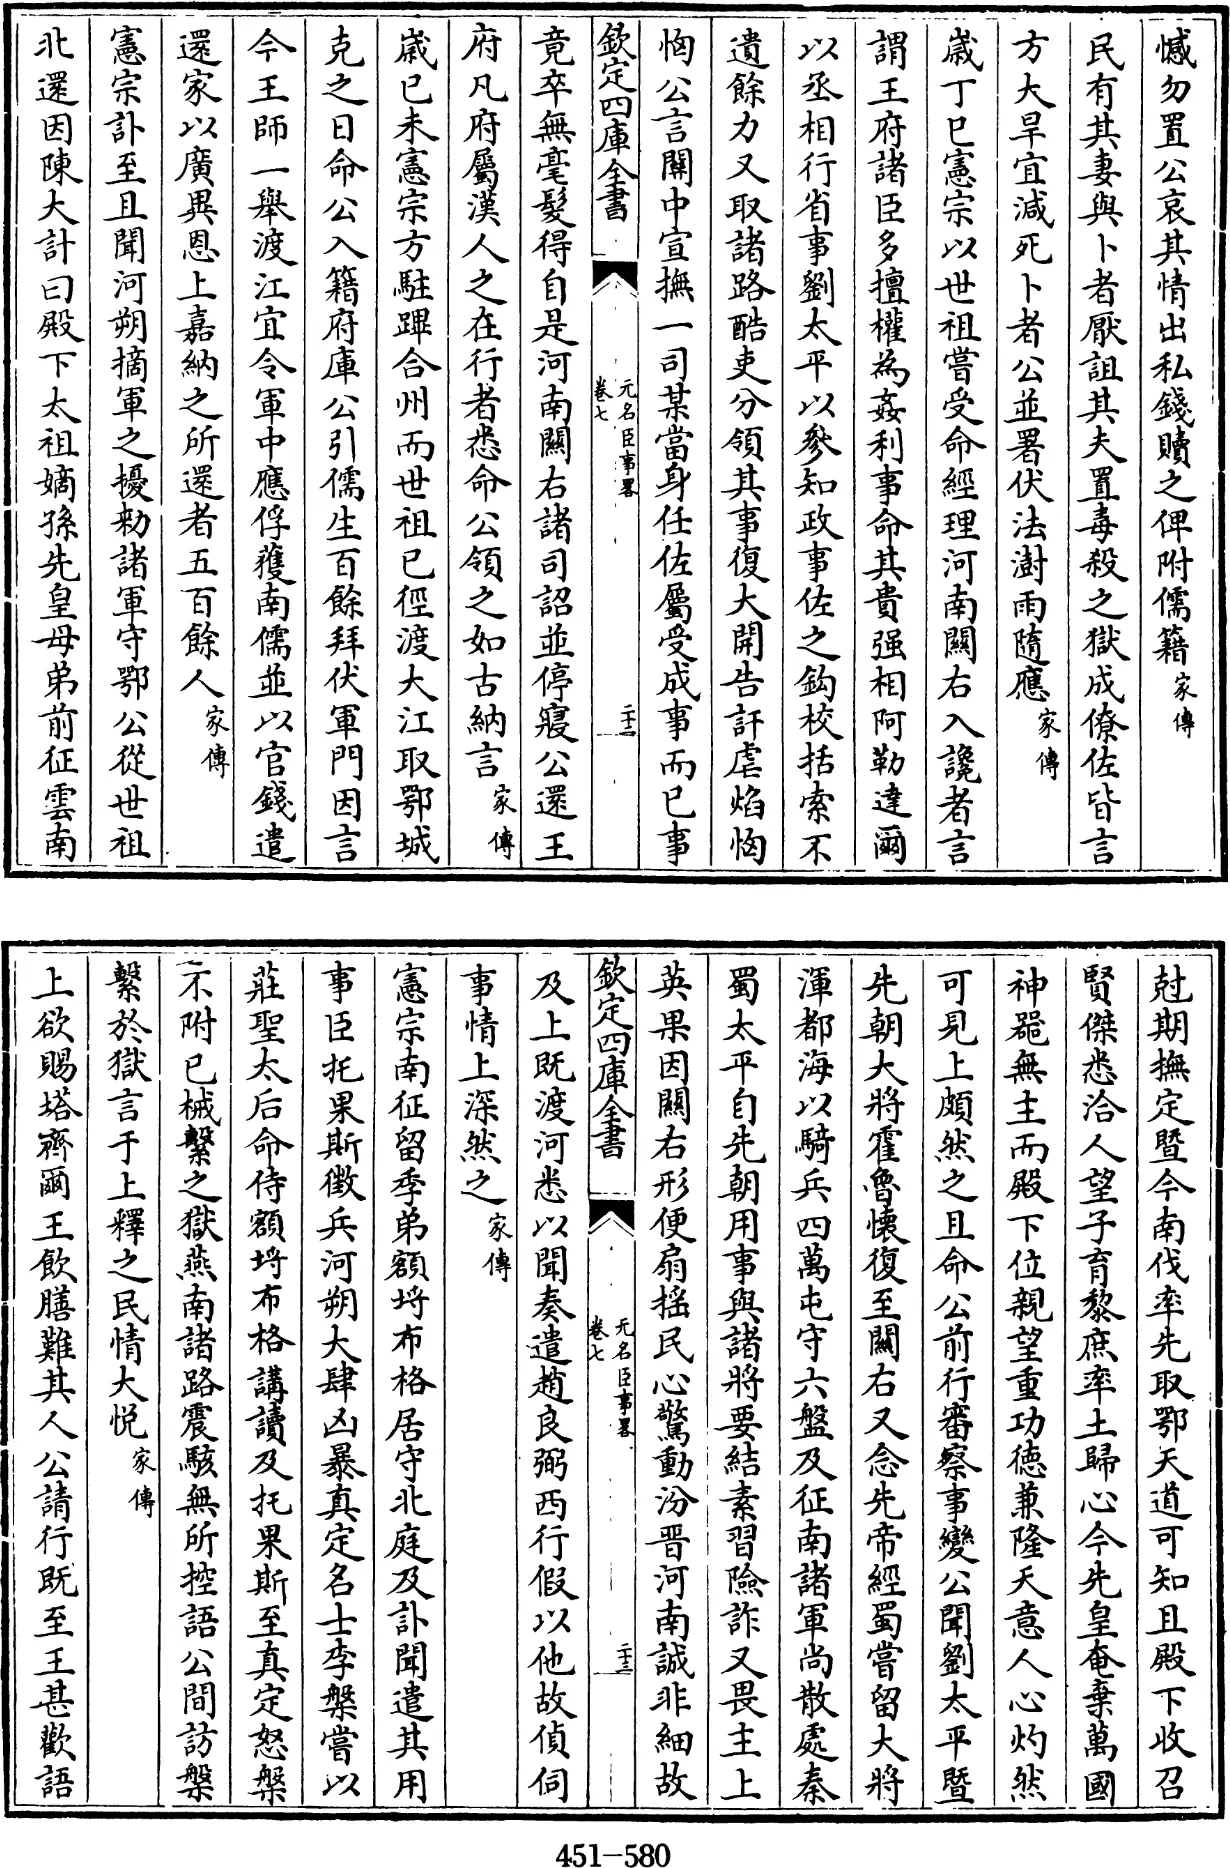 憾勿置公哀其情出私錢贖之俾附儒籍家傳
民有其妻與卜者厭詛其夫置毒殺之獄成僚佐皆言
方大旱宜減死卜者公並署伏法澍雨隨應家傳
歲丁巳憲宗以世祖嘗受命經理河南關右入讒者言
謂王府諸臣多擅權為姦利事命其貴强相阿勒達爾
以丞相行省事劉太平以參知政事佐之鈎校括索不
遺餘力又取諸路酷吏分領其事復大開告訐虐焰恟
恟公言關中宣撫一司某當身任佐屬受成事而已事
欽定四庫全書
元名臣事畧
卷七
二十二
竟卒無毫髮得自是河南關右諸司詔並停寢公還王
府凡府屬漢人之在行者悉命公領之如古納言家傳
歲已未憲宗方駐蹕合州而世祖已徑渡大江取鄂城
克之日命公入籍府庫公引儒生百餘拜伏軍門因言
今王師一舉渡江宜令軍中應俘獲南儒並以官錢遣
還家以廣異恩上嘉納之所還者五百餘人家傳
憲宗訃至且聞河朔摘軍之擾勑諸軍守鄂公從世祖
北還因陳大計曰殿下太祖嫡孫先皇母弟前征雲南
尅期撫定暨今南伐率先取鄂天道可知且殿下收召
賢傑悉洽人望子育黎庶率土歸心今先皇奄棄萬國
神噐無主而殿下位親望重功德兼隆天意人心灼然
可見上頗然之且命公前行審察事變公聞劉太平暨
先朝大將霍魯懷復至關右又念先帝經蜀嘗留大將
渾都海以騎兵四萬屯守六盤及征南諸軍尚散處秦
蜀太平自先朝用事與諸將要結素習險詐又畏主上
英果因關右形便扇摇民心驚動汾晋河南誠非細故
欽定四庫全書
元名臣事畧
卷七
二十三
及上既渡河悉以聞奏遣趙良弼西行假以他故偵伺
事情上深然之家傳
憲宗南征留季弟額埒布格居守北庭及訃聞遣其用
事臣托果斯徵兵河朔大肆凶暴真定名士李槃嘗以
莊聖太后命侍額埒布格講讀及托果斯至真定怒槃
不附已械繫之獄燕南諸路震駭無所控語公間訪槃
繫於獄言于上釋之民情大悅家傳
上欲賜塔齊爾王飲膳難其人公請行既至王甚歡語
451-580